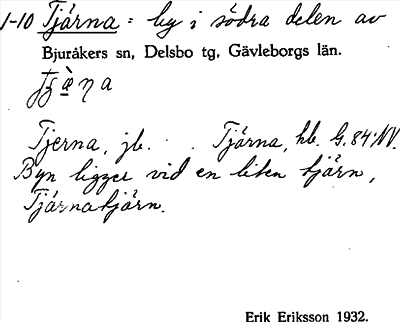 1-10 Tjärna = by i södra delen av
Bjuråkers sn, Delsbo tg, Gävleborgs län.
Tjerna, jb. . Tjärna, hb. G. 84 NV.
Byn ligger vid en liten tjärn,
Tjärnatjärn.
Erik Eriksson 1932.